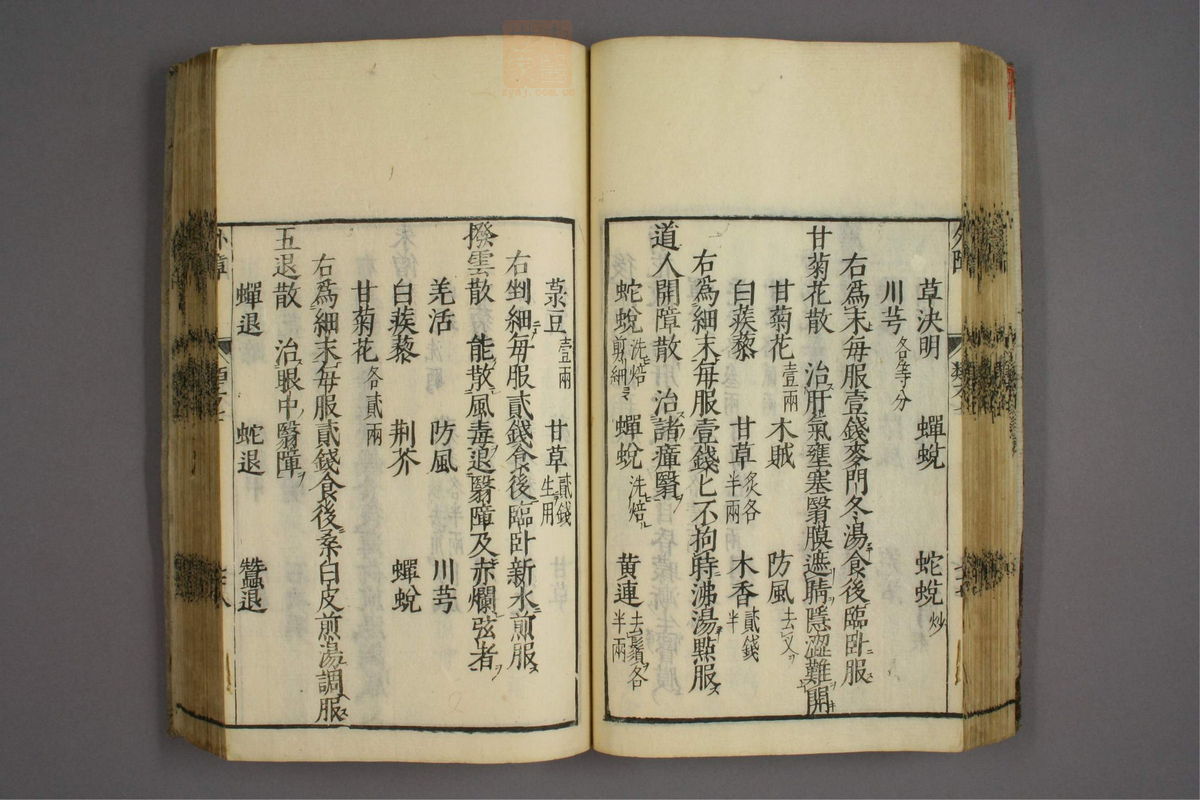 草決明 蟬蛻 蛇蛻炒
川芎各等分
右爲末每服壹錢麥門冬湯食後臨卧服
甘菊花散 治肝氣壅塞翳膜遮睛隱澀難開
甘菊花壹兩 木賊 防風去叉
白蒺藜 甘草炙各半兩 木香貳錢半
右爲細末每服壹錢匕不拘時沸湯㸃服
道人開障散 治諸瘴翳
蛇蛻洗焙剪細 蟬蛻洗焙 黄連去鬚各半兩
菉豆壹兩 甘草貳錢生用
右剉細每服貳錢食後臨卧新水煎服
撥雲散 能散風毒退翳障及赤爛弦者
羌活 防風 川芎
白蒺藜 荆芥 蟬蛻
甘菊花各貳兩
右爲細末每服貳錢食後桑白皮煎湯調服
五退散 治眼中翳障
蟬退 蛇退 蠶退